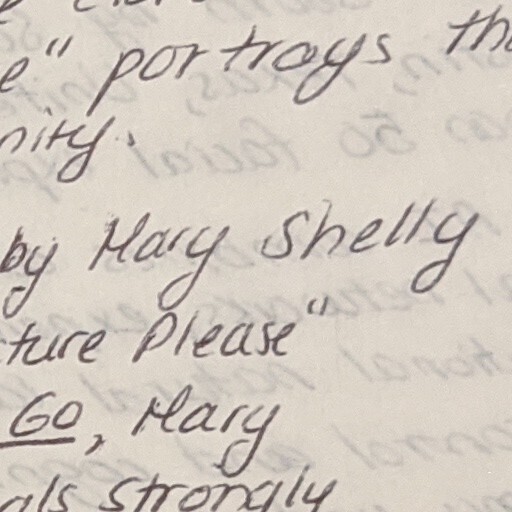 e" portrays the
nity.
by Mary Shelly
ture Please"
GO, Mary
als strongly